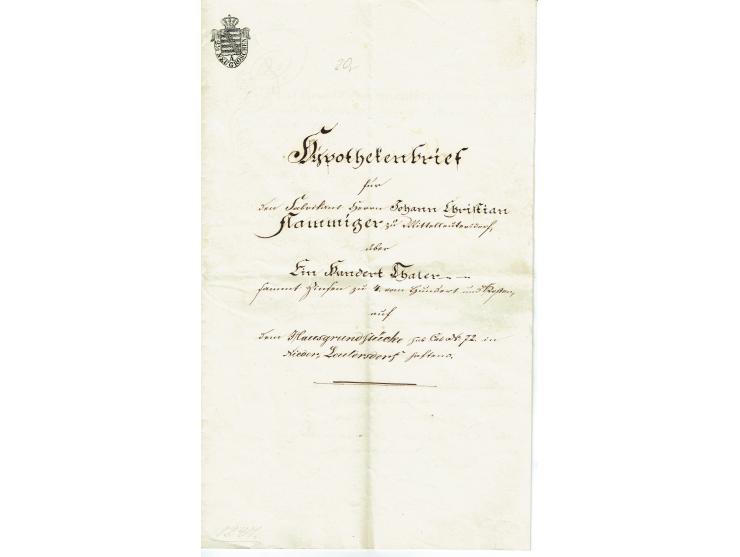 20
Hypothekenbrief
für
den Fabrikant Herrn Johann Christian
Flammiger zu Mittelleutersdorf,
über
Ein Hundert Thaler
sammt Zinsen zu 4. vom Hundert und Kosten,
auf
dem Hausgrundstücke sub Cat. № 72 in
Nieder Leutersdorf haftend.